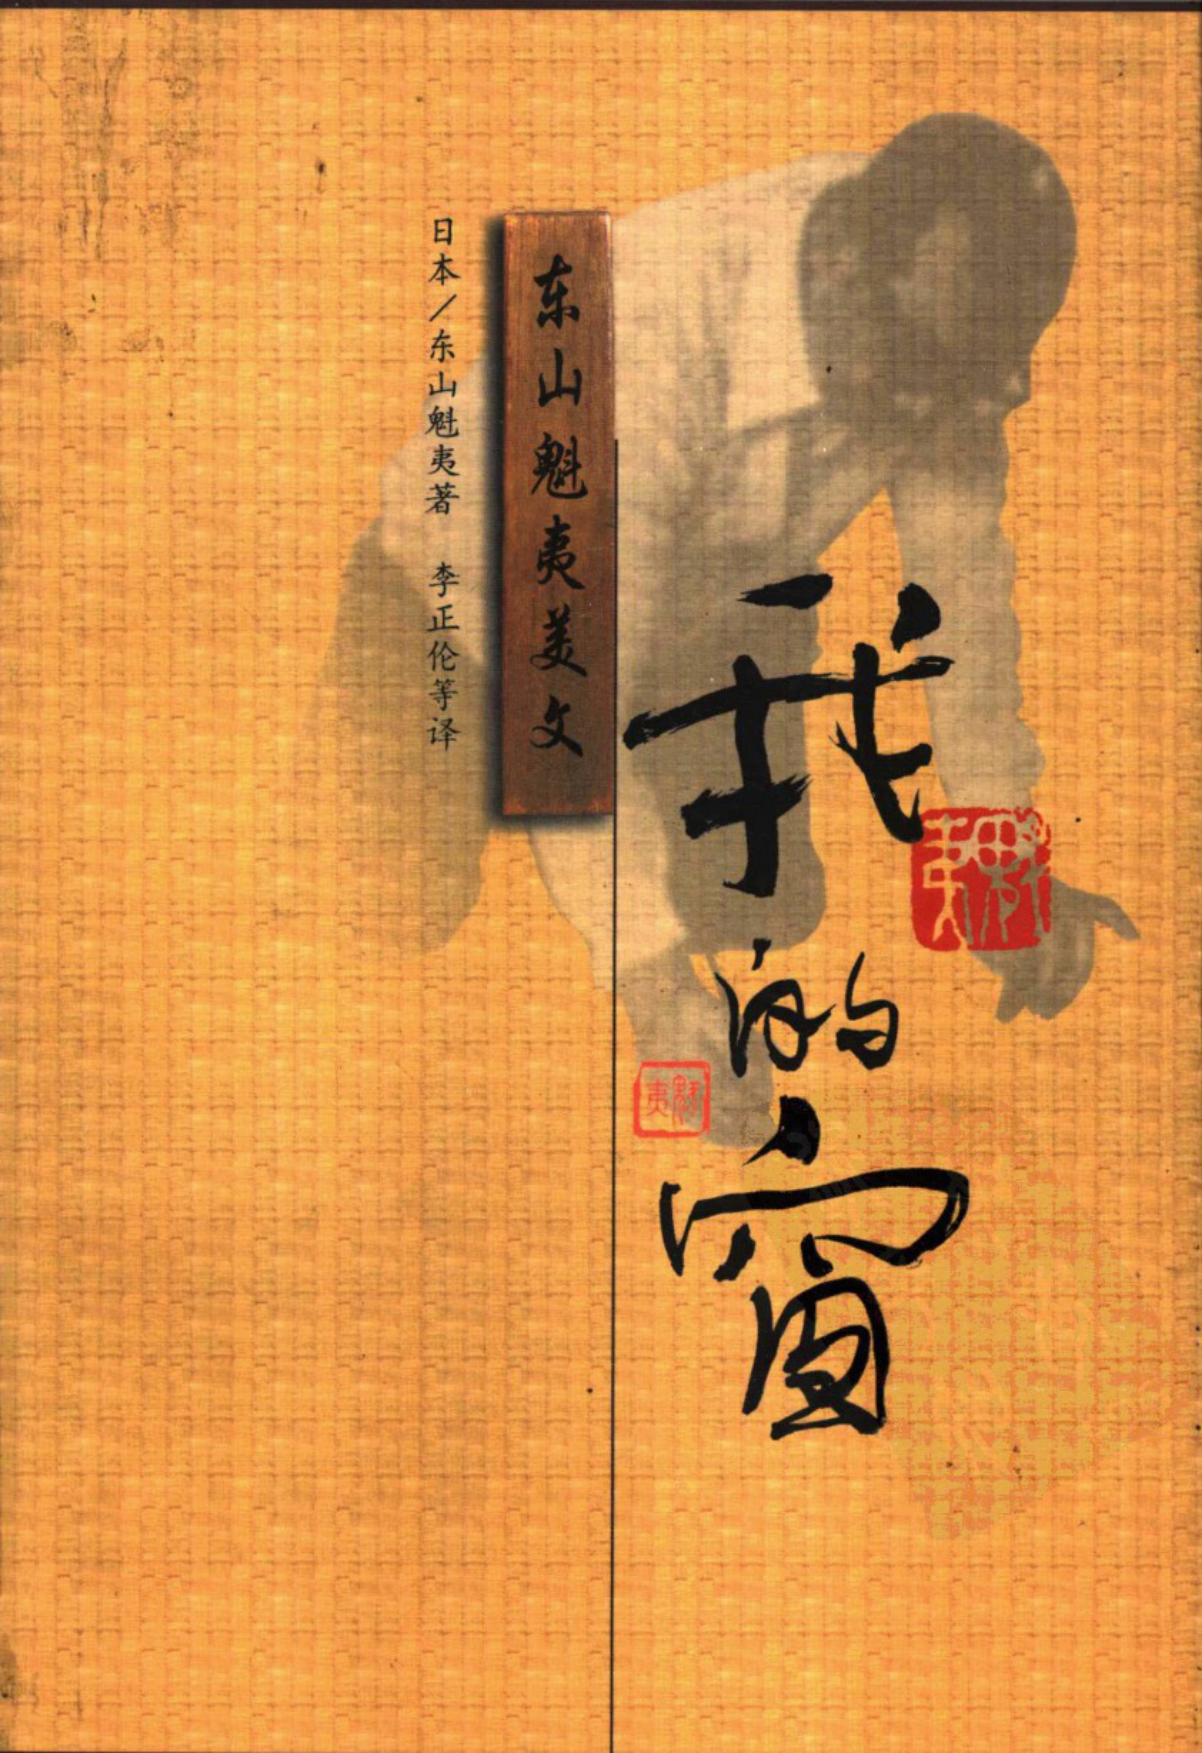 我的窗
魁夷
魁夷
东山魁夷美文
日本/东山魁夷著 李正伦等译